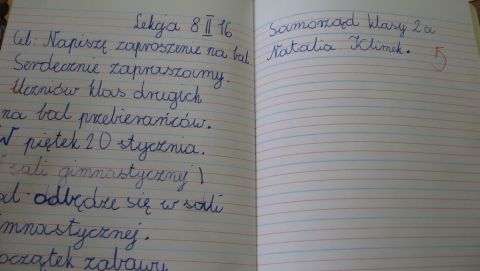 Lekcja 8 II 16
Cel: Napiszę zaproszenie na bal.
Serdecznie zapraszamy.
Uczniów klas drugich
na bal przebierańców.
W piątek 20 stycznia.
sali gimnastycznej
odbędzie się w sali
imnastycznej.
początek zabawy
Samorząd klasy 2a
Natalia Klimek.